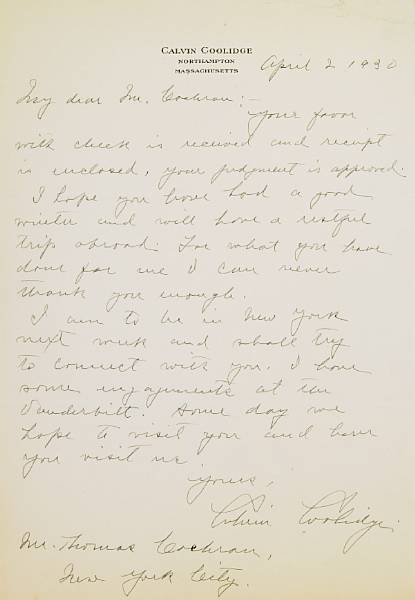 CALVIN COOLIDGE
NORTHAMPTON
MASSACHUSETTS
April 2 1930
My dear Mr. Cochran:-
Your favor
with check is received and receipt
is enclosed, your judgment is approved.
I hope you have had a good
winter and will have a restful
trip abroad. For what you have
done for me I can never
thank you enough.
I am to be in New York
next week and shall try
to connect with you. I have
some engagements at the
Vanderbilt. Some day we
hope to visit you and have
you visit us
Yours,
Calvin Coolidge
Mr. Thomas Cochran,
New York City.